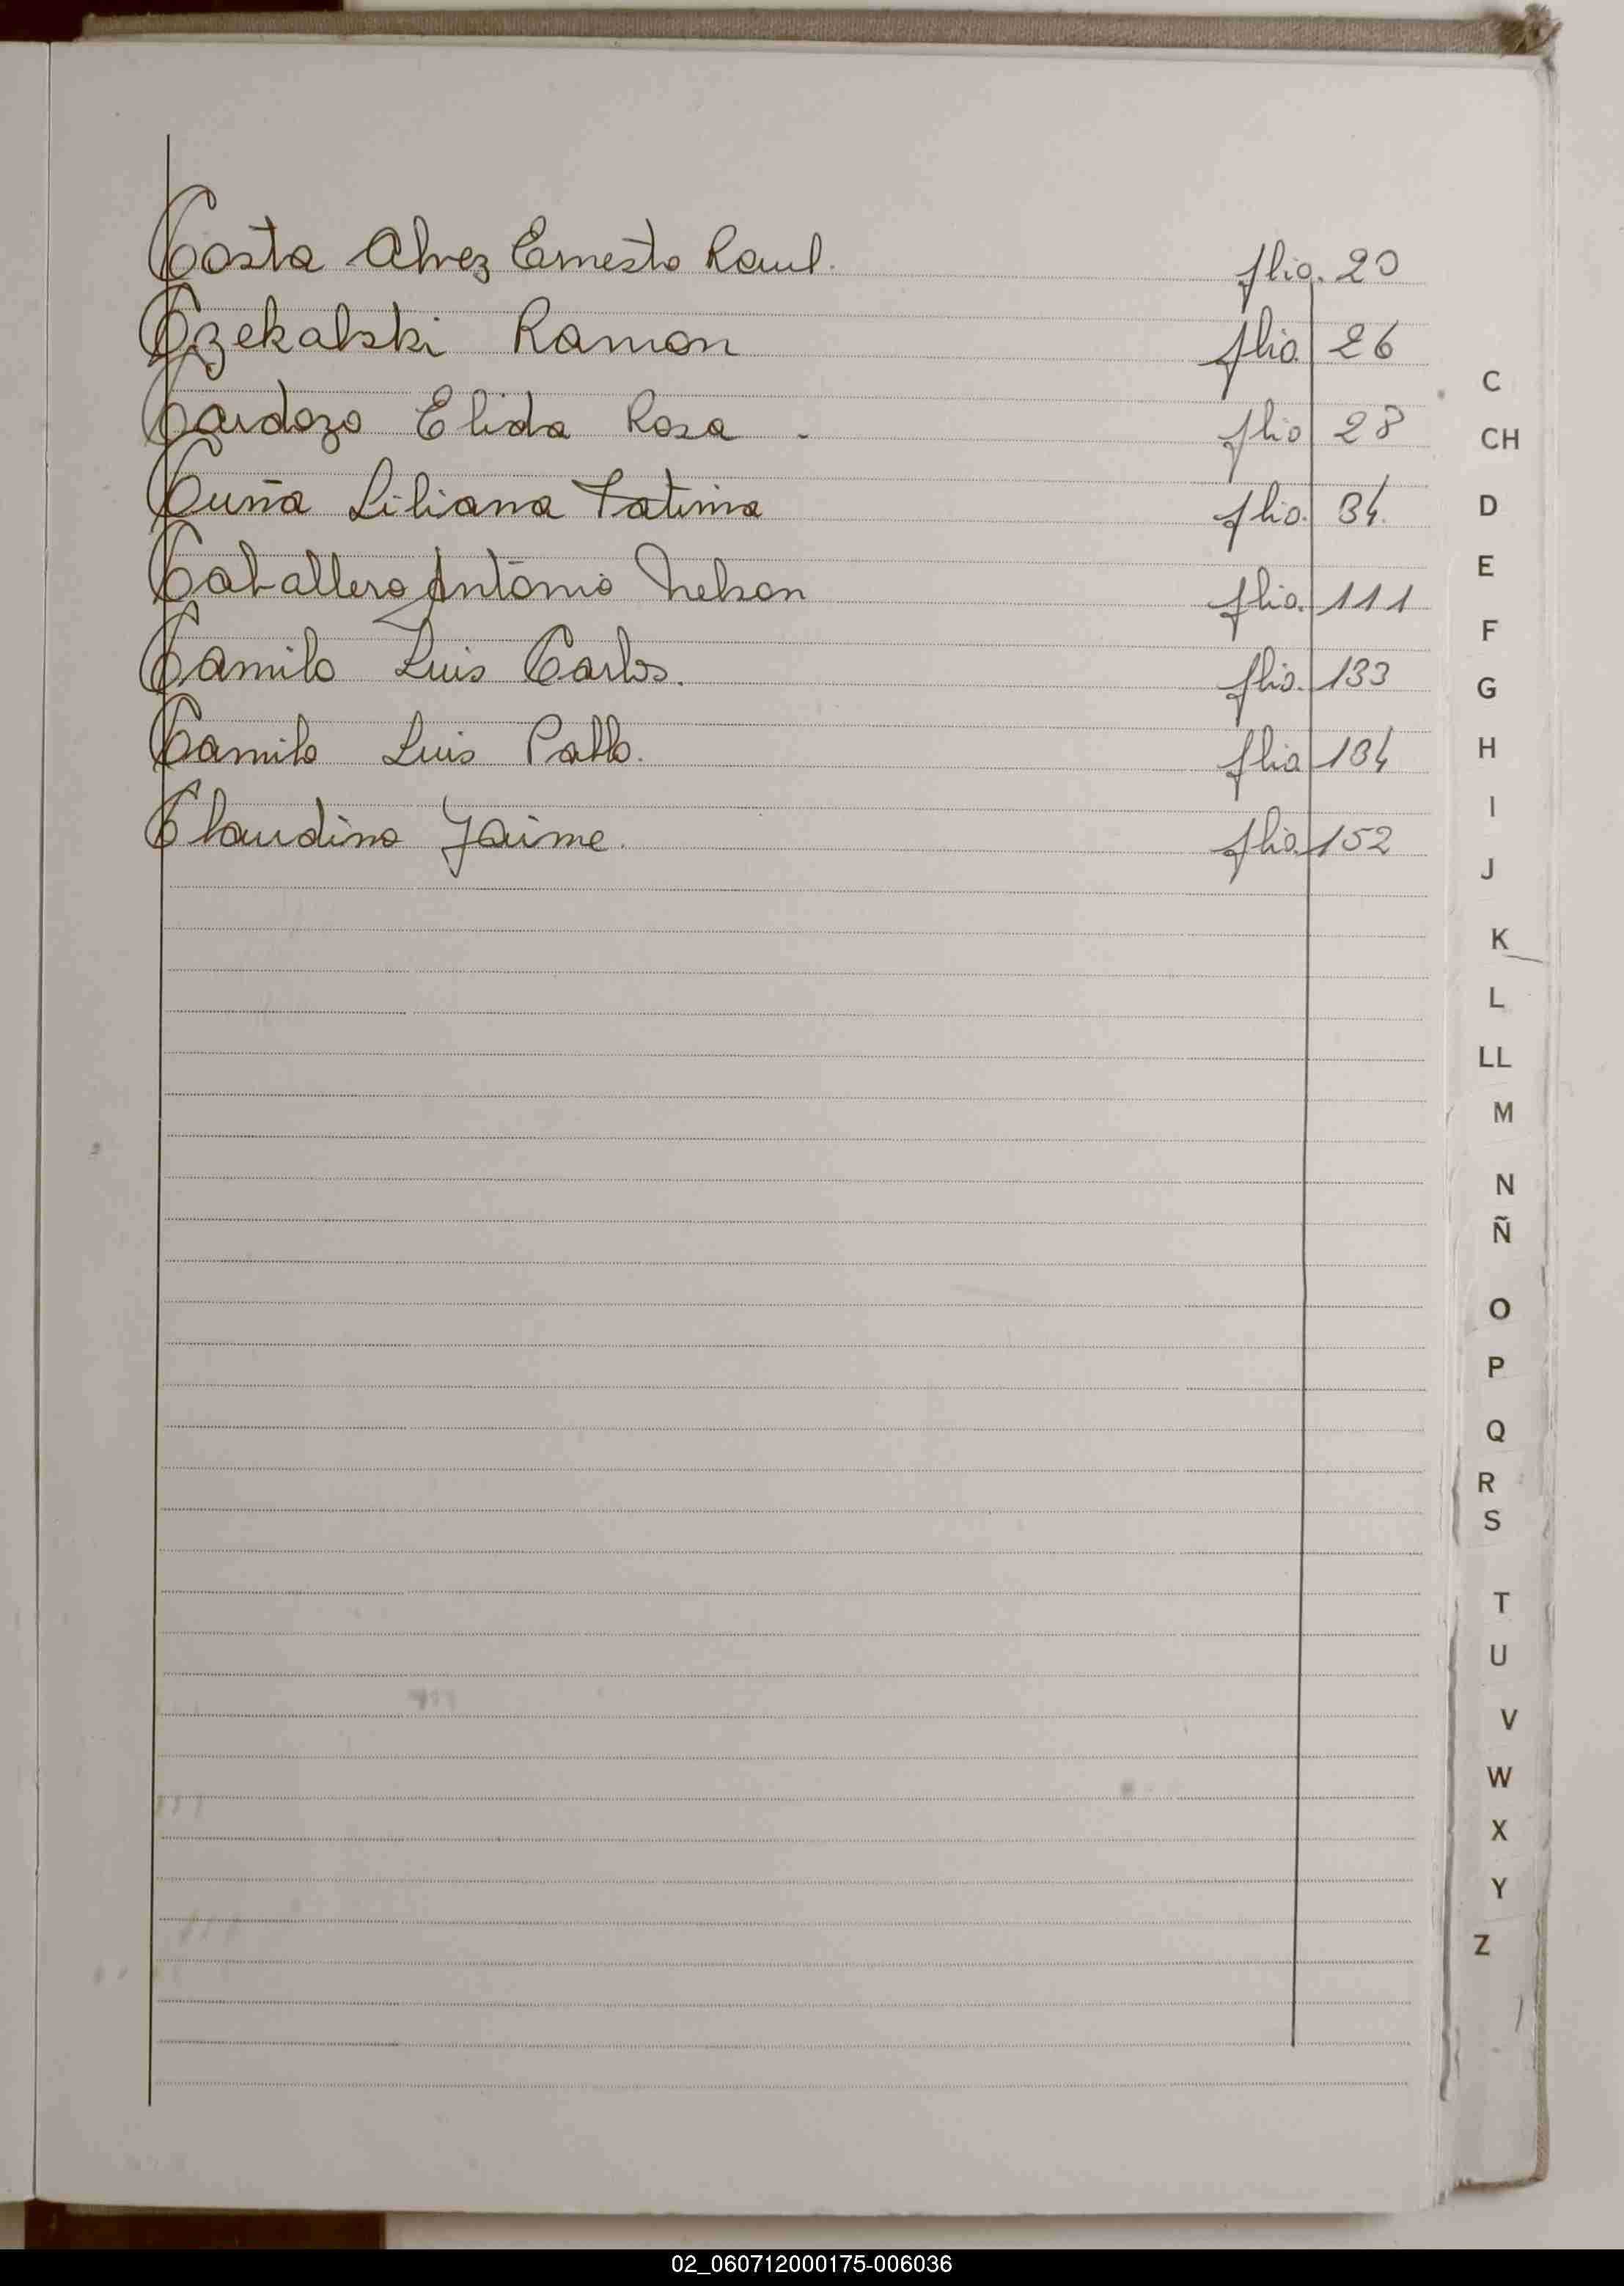 Costa Alvez Ernesto Raul. flio. 20
Czekalski Ramon flio 26
Cardozo Elida Rosa - flio 28
Cuña Liliana Fatima flio. 34.
Caballero Antonio Nelson flio. 111
Camilo Luis Carlos. flio. 133
Camilo Luis Pablo. flio 134
Claudino Jaime. flio. 152
C
CH
D
E
F
G
H
I
J
K
L
LL
M
N
Ñ
O
P
Q
R
S
T
U
V
W
X
Y
Z
02_060712000175-006036